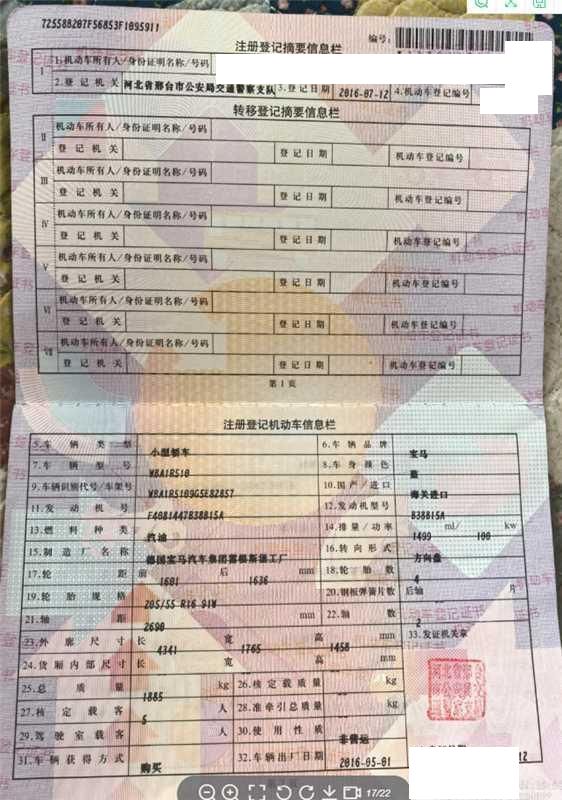 72558B207F56853F1095911
注册登记摘要信息栏
编号:
I 1.机动车所有人/身份证明名称/号码
2.登记机关 河北省邢台市公安局交通警察支队 3.登记日期 2016-07-12 4.机动车登记编号
转移登记摘要信息栏
II 机动车所有人/身份证明名称/号码
登记机关 登记日期 机动车登记编号
III 机动车所有人/身份证明名称/号码
登记机关 登记日期 机动车登记编号
IV 机动车所有人/身份证明名称/号码
登记机关 登记日期 机动车登记编号
V 机动车所有人/身份证明名称/号码
登记机关 登记日期 机动车登记编号
VI 机动车所有人/身份证明名称/号码
登记机关 登记日期 机动车登记编号
VII 机动车所有人/身份证明名称/号码
登记机关 登记日期 机动车登记编号
第1页
注册登记机动车信息栏
5.车辆类型 小型轿车 6.车辆品牌 宝马
7.车辆型号 WBA1R510 8.车身颜色 蓝
9.车辆识别代号/车架号 WBA1R5109G5E82857 10.国产/进口 海关进口
11.发动机号 F4081447B38B15A 12.发动机型号 B38B15A
13.燃料种类 汽油 14.排量/功率 1499 ml/ 100 kw
15.制造厂名称 德国宝马汽车集团雷根斯堡工厂 16.转向形式 方向盘
17.轮距 前 1601 后 1636 mm 18.轮胎数 4
19.轮胎规格 205/55 R16 91W 20.钢板弹簧片数 后轴 片
21.轴距 2690 mm 22.轴数 2
23.外廓尺寸 长 4341 宽 1765 高 1458 mm 33.发证机关章
24.货厢内部尺寸 长 宽 高 mm
25.总质量 1885 kg 26.核定载质量 kg
27.核定载客 5 人 28.准牵引总质量 kg
29.驾驶室载客 人 30.使用性质 非营运
31.车辆获得方式 购买 32.车辆出厂日期 2016-05-01 12
17/22